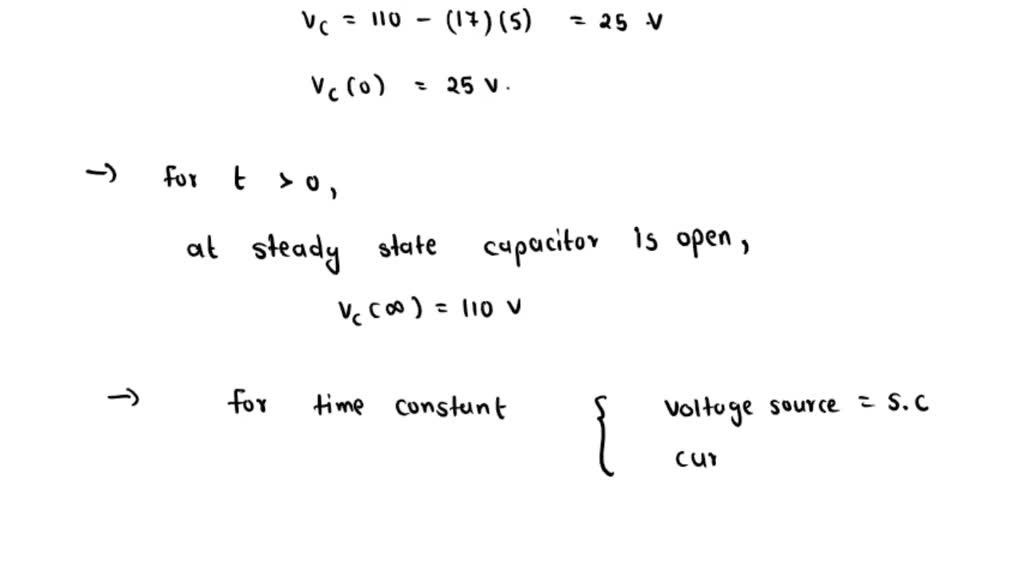 Vc = 110 - (17)(5) = 25 V
Vc(0) = 25 V.
→ for t > 0,
at steady state capacitor is open,
Vc(∞) = 110 V
→ for time constant { Voltage source = S.C
cur